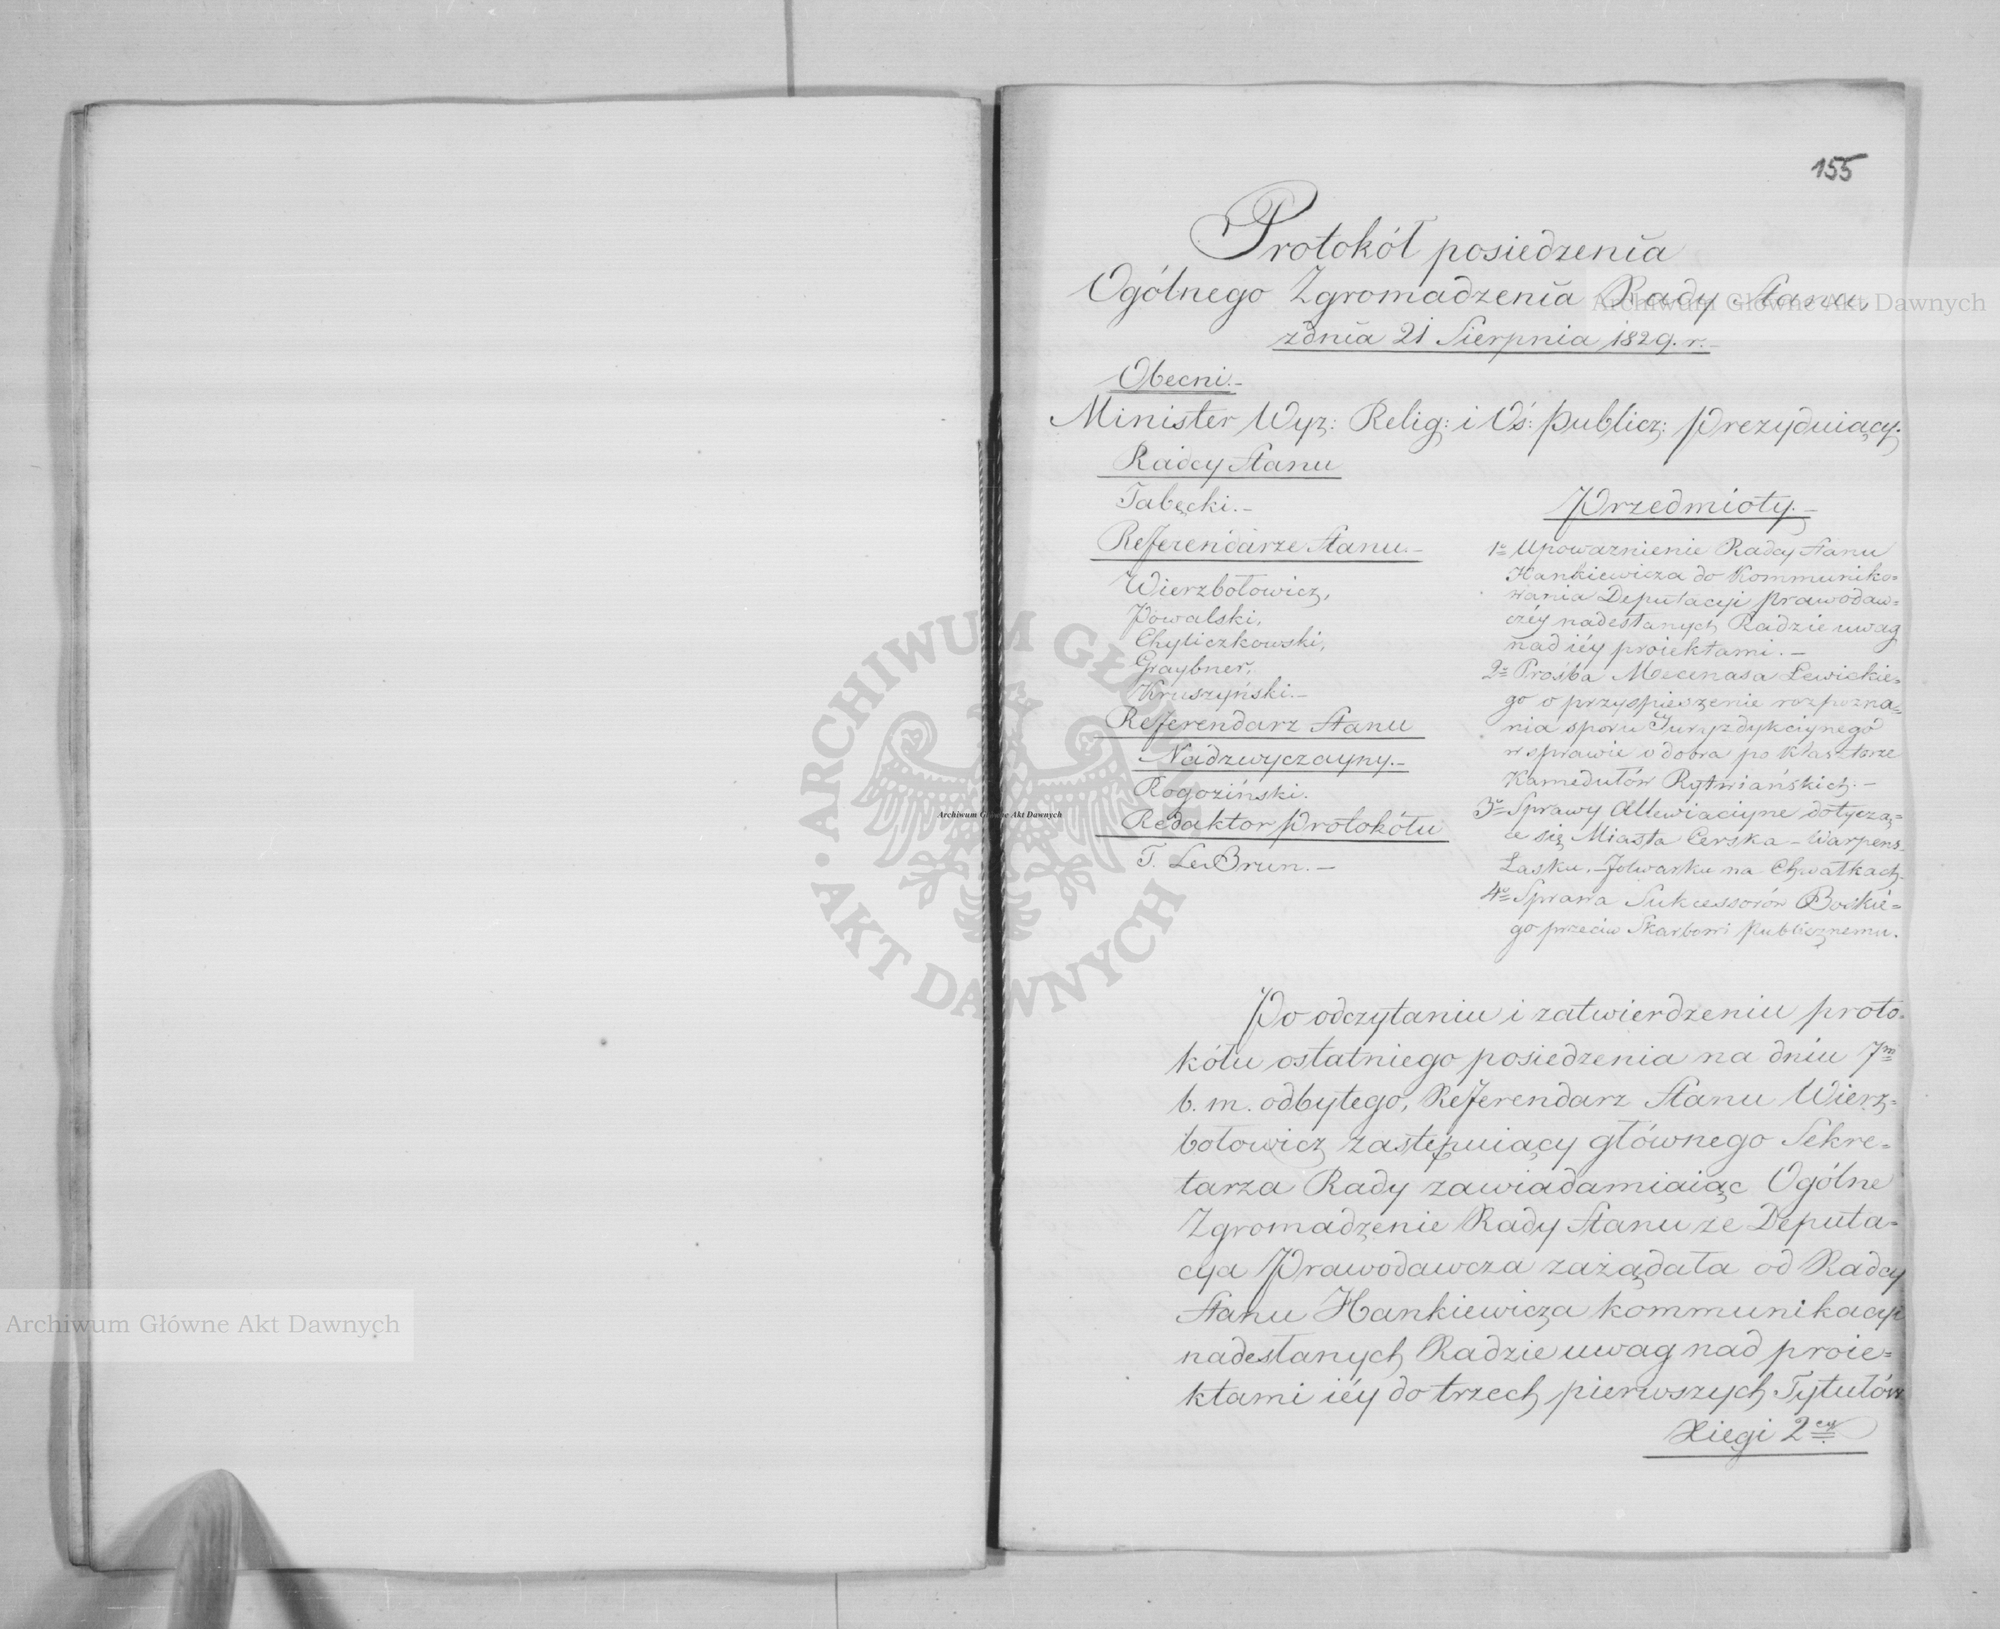 155
Protokół posiedzenia
Ogólnego Zgromadzenia Rady Stanu,
z dnia 21 Sierpnia 1829. r.-
Obecni.-
Minister Wyz: Relig: i Oś: publicz: Prezyduiący.
Radcy Stanu
Tabęcki.-
Referendarze Stanu.-
Wierzbołowicz,
Powalski,
Chyliczkowski,
Graybner,
Kruszyński.-
Referendarz Stanu
Nadzwyczayny.-
Rogoziński.
Redaktor Protokółu
T. LeBrun.-
Przedmioty.-
1o Upoważnienie Radcy Stanu
Hankiewicza do Kommuniko=
wania Deputacyi prawodaw=
czéy nadesłanych Radzie uwag
nad iéy proiektami.-
2o Prośba Mecenasa Lewickie=
go o przyspieszenie rozpozna=
nia sporu Juryzdykcyinego
w sprawie o dobra po Klasztorze
Kamedułów Rytwiańskich.-
3o Sprawy Allewiacyine dotyczą=
ce się Miasta Cerska - Warpens
Lasku, - folwarku na Chwałkach.
4o Sprawa Sukcessorów Boskie=
go przeciw Skarbowi publicznemu.
Po odczytaniu i zatwierdzeniu proto=
kółu ostatniego posiedzenia na dniu 7m
b. m. odbytego, Referendarz Stanu Wierz=
bołowicz zastępuiący głównego Sekre=
tarza Rady zawiadamiaiąc Ogólne
Zgromadzenie Rady Stanu że Deputa=
cya Prawodawcza zażądała od Radcy
Stanu Hankiewicza kommunikacyi
nadesłanych Radzie uwag nad proie=
ktami iéy do trzech pierwszych Tytułów
Xięgi 2ey
Archiwum Główne Akt Dawnych
Archiwum Główne Akt Dawnych
Archiwum Główne Akt Dawnych
ARCHIWUM GŁÓWNE AKT DAWNYCH